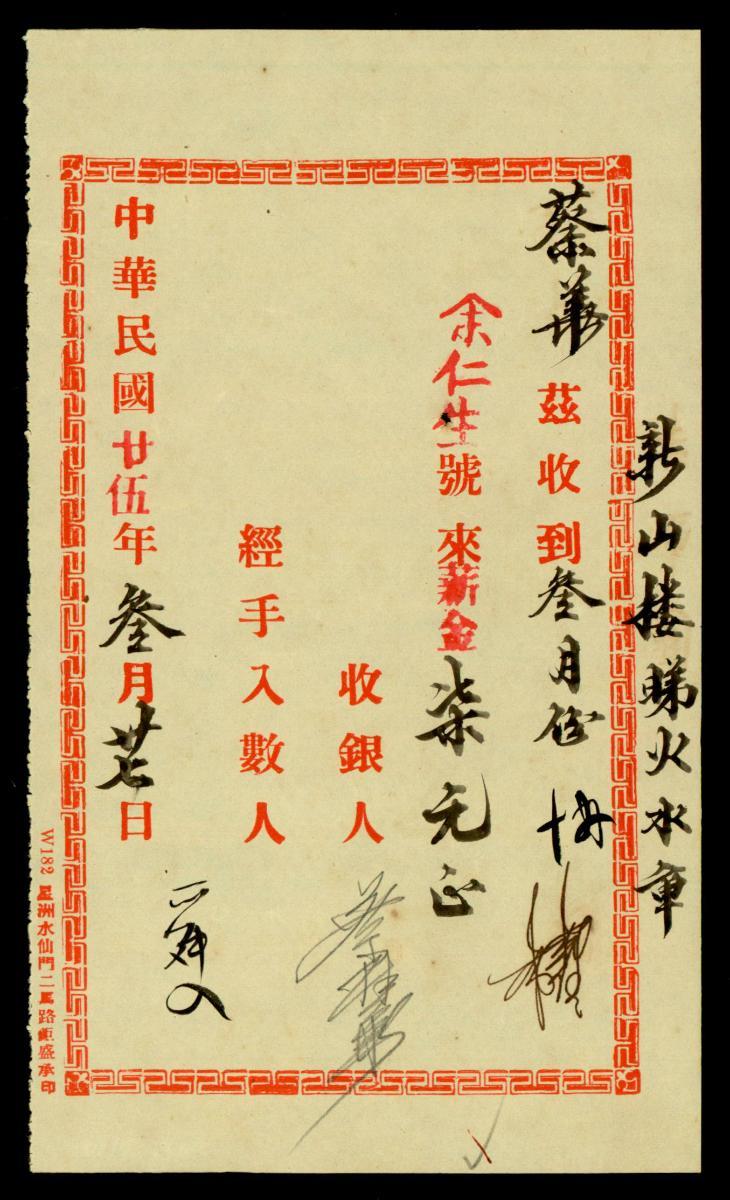 新山楼睇火水車
蔡華茲收到叁月份
余仁生號來薪金柒元正
收銀人
經手入數人
中華民國廿伍年叁月廿七日
W182 星洲水仙門二馬路鉅盛承印